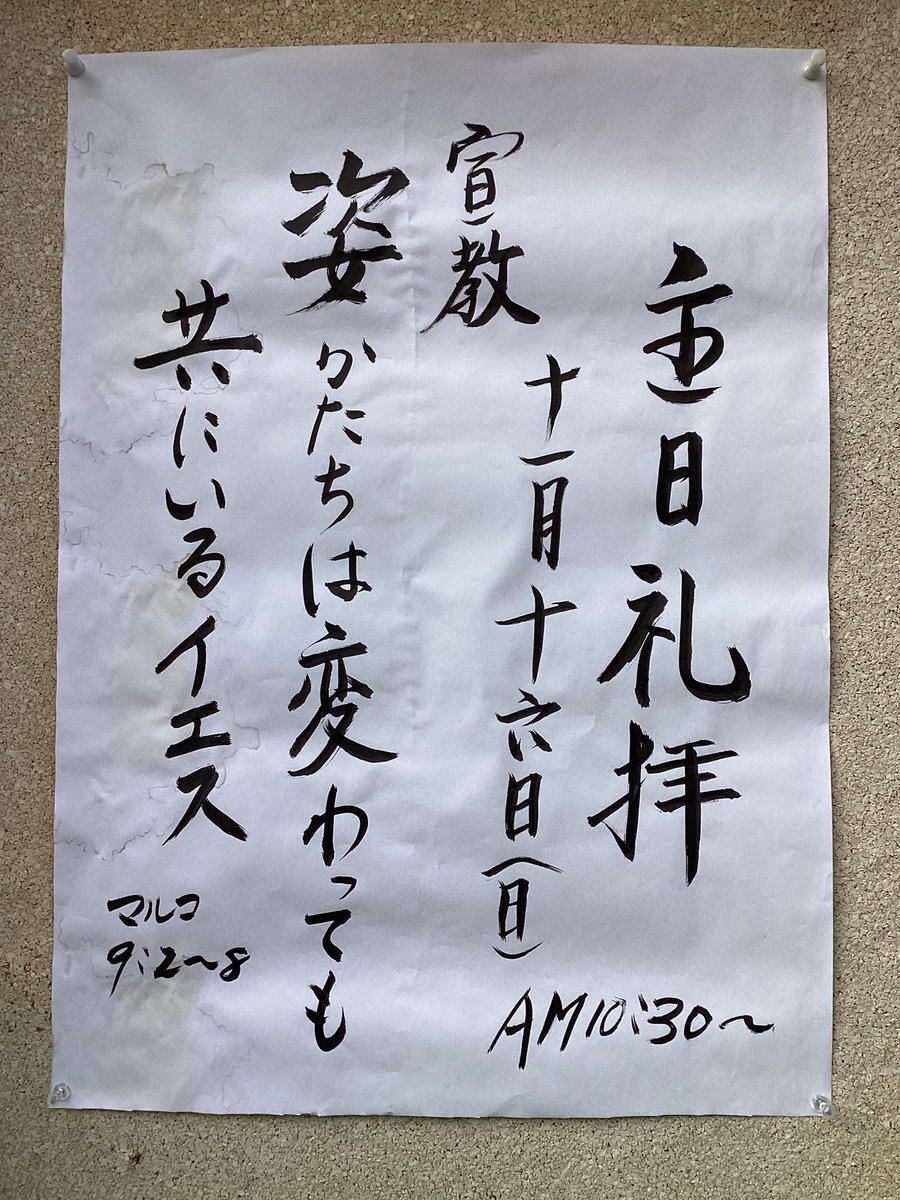 主日礼拝
十一月十六日(日)
AM10:30～
宣教
姿かたちは変わっても
共にいるイエス
マルコ
9:2～8